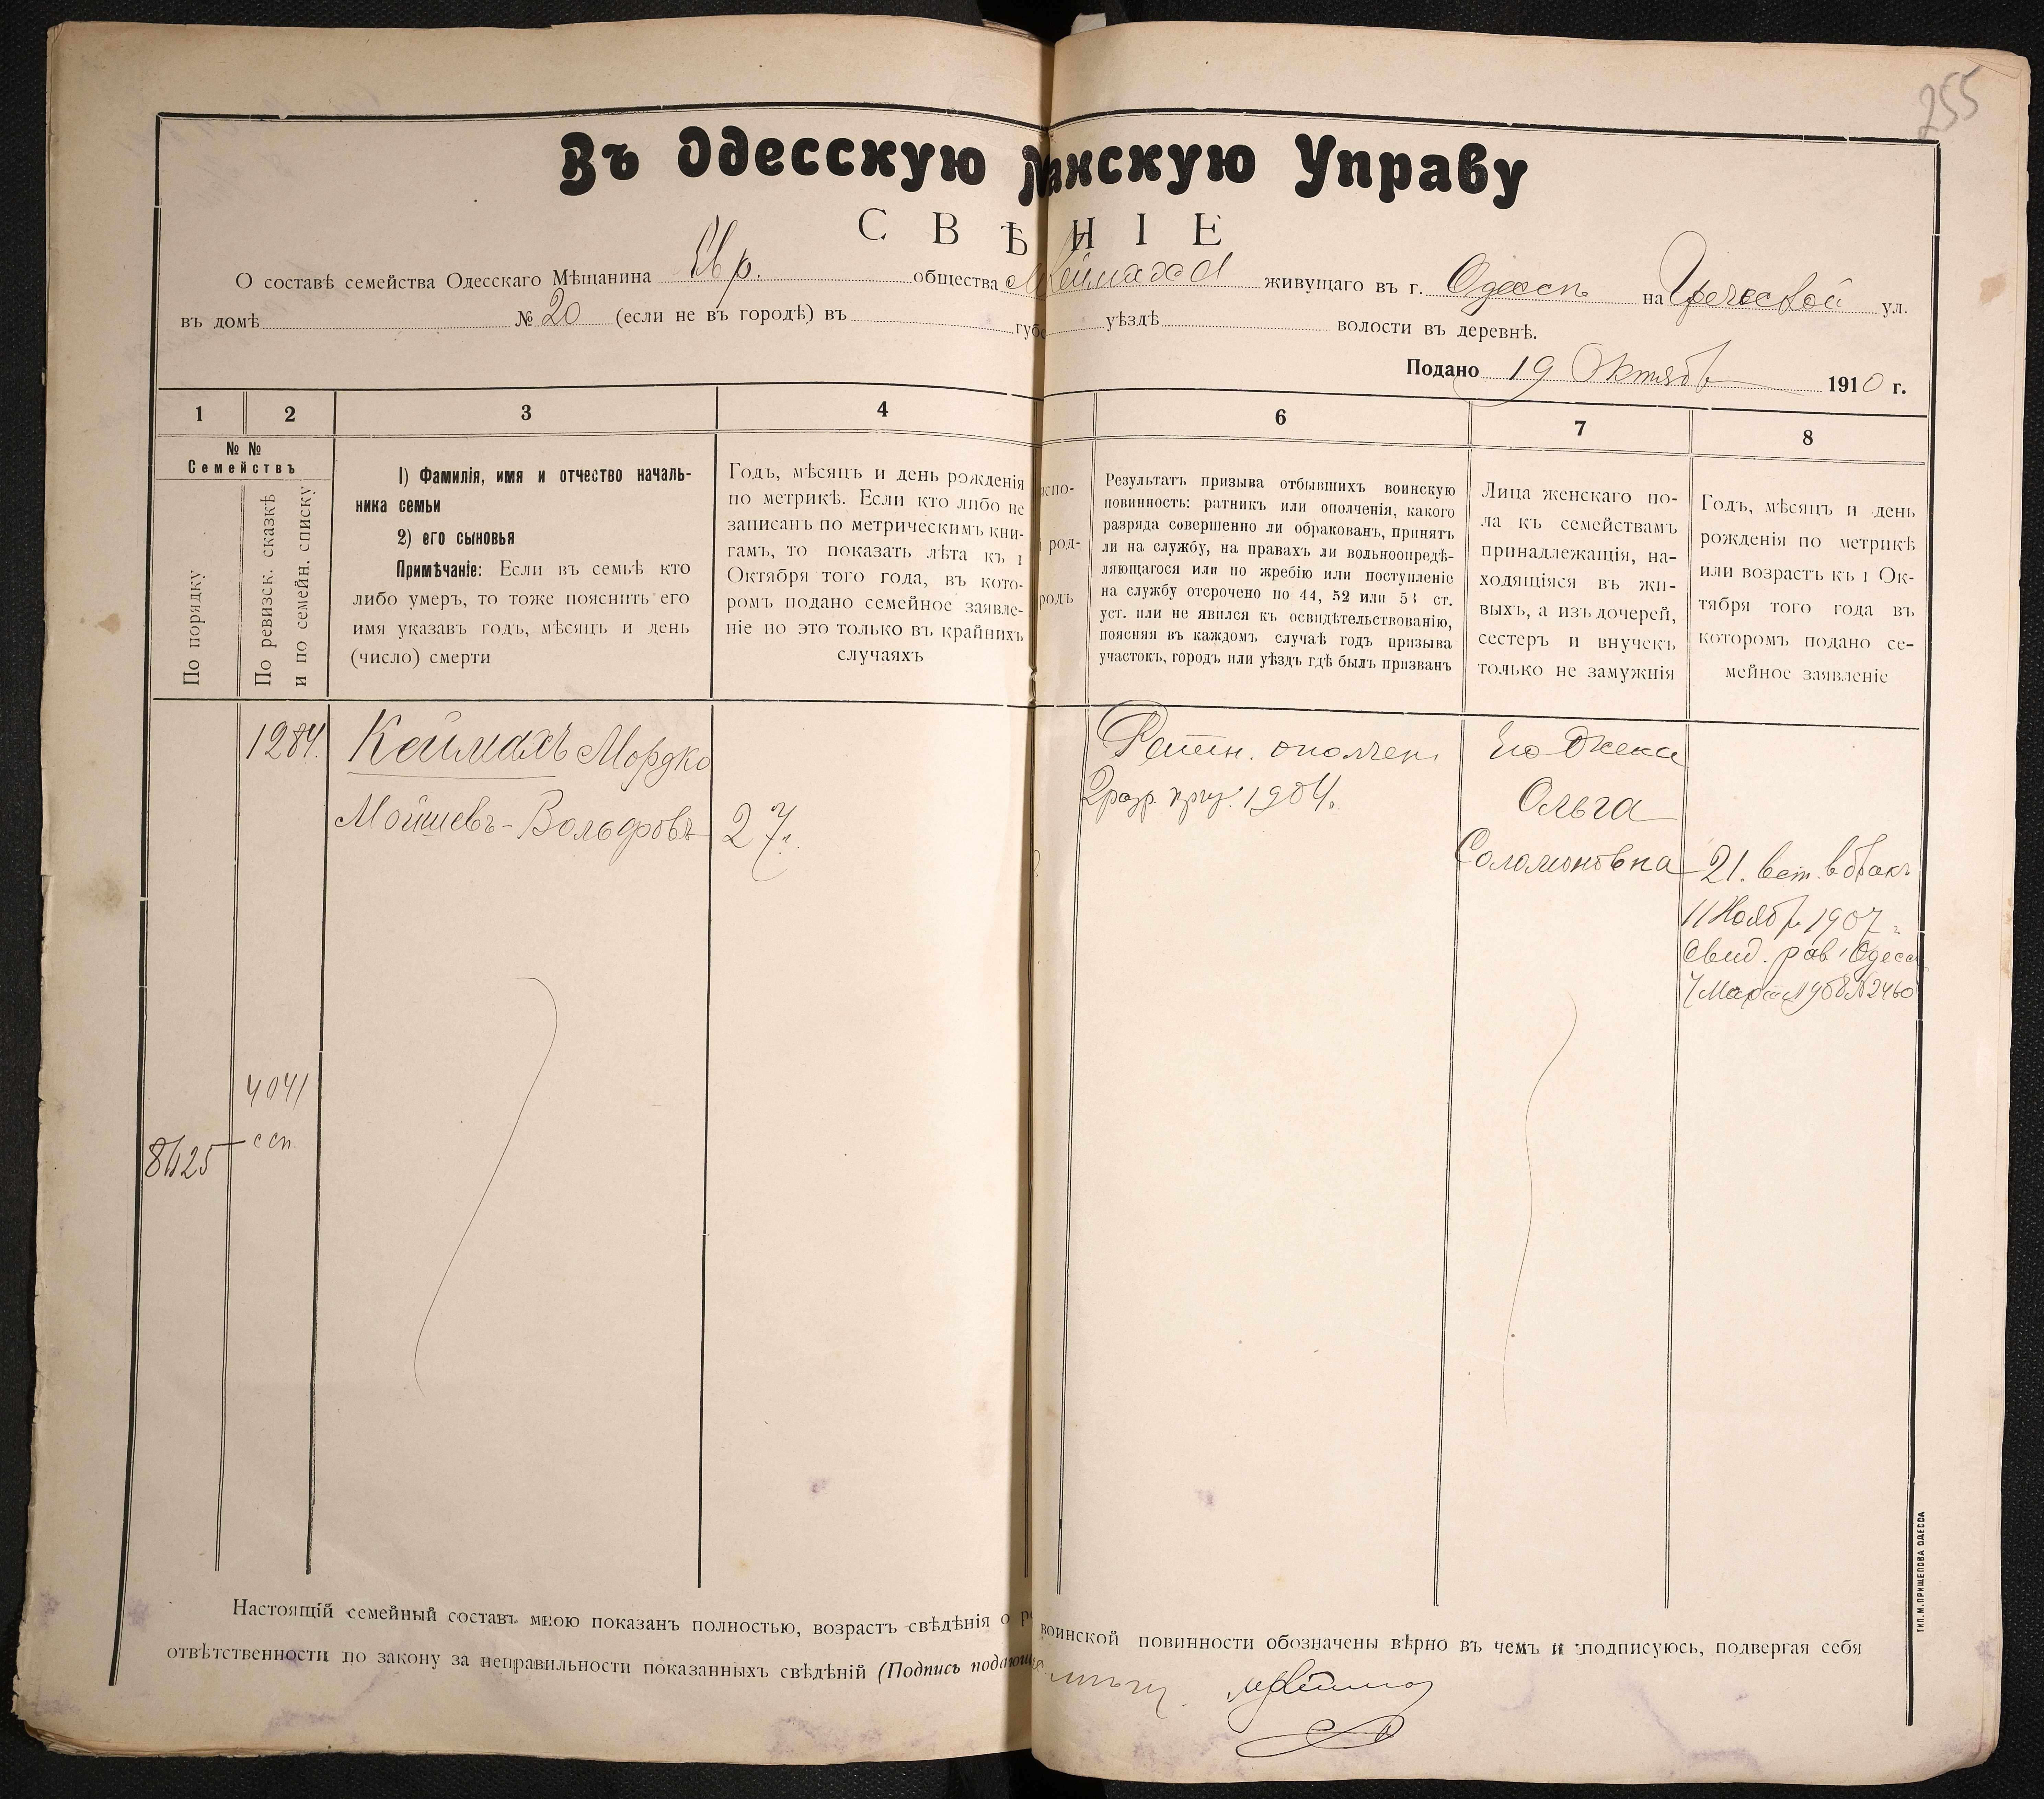 255
Въ Одесскую анскую Управу
СВѢ НІЕ
О составѣ семейства Одесскаго Мѣщанина Евр. общества живущаго въ г. Одессѣ на Греческой ул.
въ домѣ № 20 (если не въ городѣ) въ губ уѣздѣ волости въ деревнѣ.
Подано 19 Октября 1910 г.
1 2 3 4 6 7 8
№ №
Семействъ
По порядку
По ревизск. сказкѣ
и по семейн. списку
1) Фамилія, имя и отчество началь-
ника семьи
2) его сыновья
Примѣчаніе: Если въ семьѣ кто
либо умеръ, то тоже пояснить его
имя указавъ годъ, мѣсяцъ и день
(число) смерти
Годъ, мѣсяцъ и день рожденія
по метрикѣ. Если кто либо не
записанъ по метрическимъ кни-
гамъ, то показать лѣта къ 1
Октября того года, въ кото-
ромъ подано семейное заявле-
ніе но это только въ крайнихъ
случаяхъ
испо-
род-
родъ
Результатъ призыва отбывшихъ воинскую
повинность: ратникъ или ополченія, какого
разряда совершенно ли обракованъ, принятъ
ли на службу, на правахъ ли вольноопредѣ-
ляющагося или по жребію или поступленіе
на службу отсрочено по 44, 52 или 53 ст.
уст. или не явился къ освидѣтельствованію,
поясняя въ каждомъ случаѣ годъ призыва
участокъ, городъ или уѣздъ гдѣ былъ призванъ
Лица женскаго по-
ла къ семействамъ
принадлежащія, на-
ходящіяся въ жи-
выхъ, а изъ дочерей,
сестеръ и внучекъ
только не замужнія
Годъ, мѣсяцъ и день
рожденія по метрикѣ
или возрастъ къ 1 Ок-
тября того года въ
которомъ подано се-
мейное заявленіе
1284. Кеймахъ Мордко
Мойшевъ-Вольфовъ 27
Ратн. ополчен.
2 разр. приз. 1904 г.
Его жена
Ольга
Соломоновна
21. вст. в бракъ
11 Ноябр 1907 г.
Свид. рав. Одесс
7 Март 1908 № 2460
4041
ссп
Настоящій семейный составъ мною показанъ полностью, возрастъ свѣдѣнія о воинской повинности обозначены вѣрно въ чемъ и подписуюсь, подвергая себя
отвѣтственности по закону за неправильности показанныхъ свѣдѣній (Подпись подающ
ТИП. М. ПРИЩЕПОВА ОДЕССА